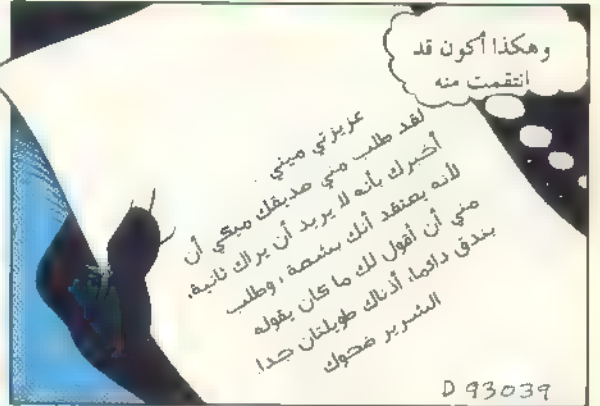 وهكذا أكون قد
انتقمت منه
عزيزتي ميني .
لقد طلب مني صديقك ميكي أن
أخبرك بأنه لا يريد أن يراك ثانية،
لأنه يعتقد أنك بشعة، وطلب
مني أن أقول لك ما كان يقوله
بندق دائما، أذناك طويلتان جدا.
الشرير ضحوك
D 93039